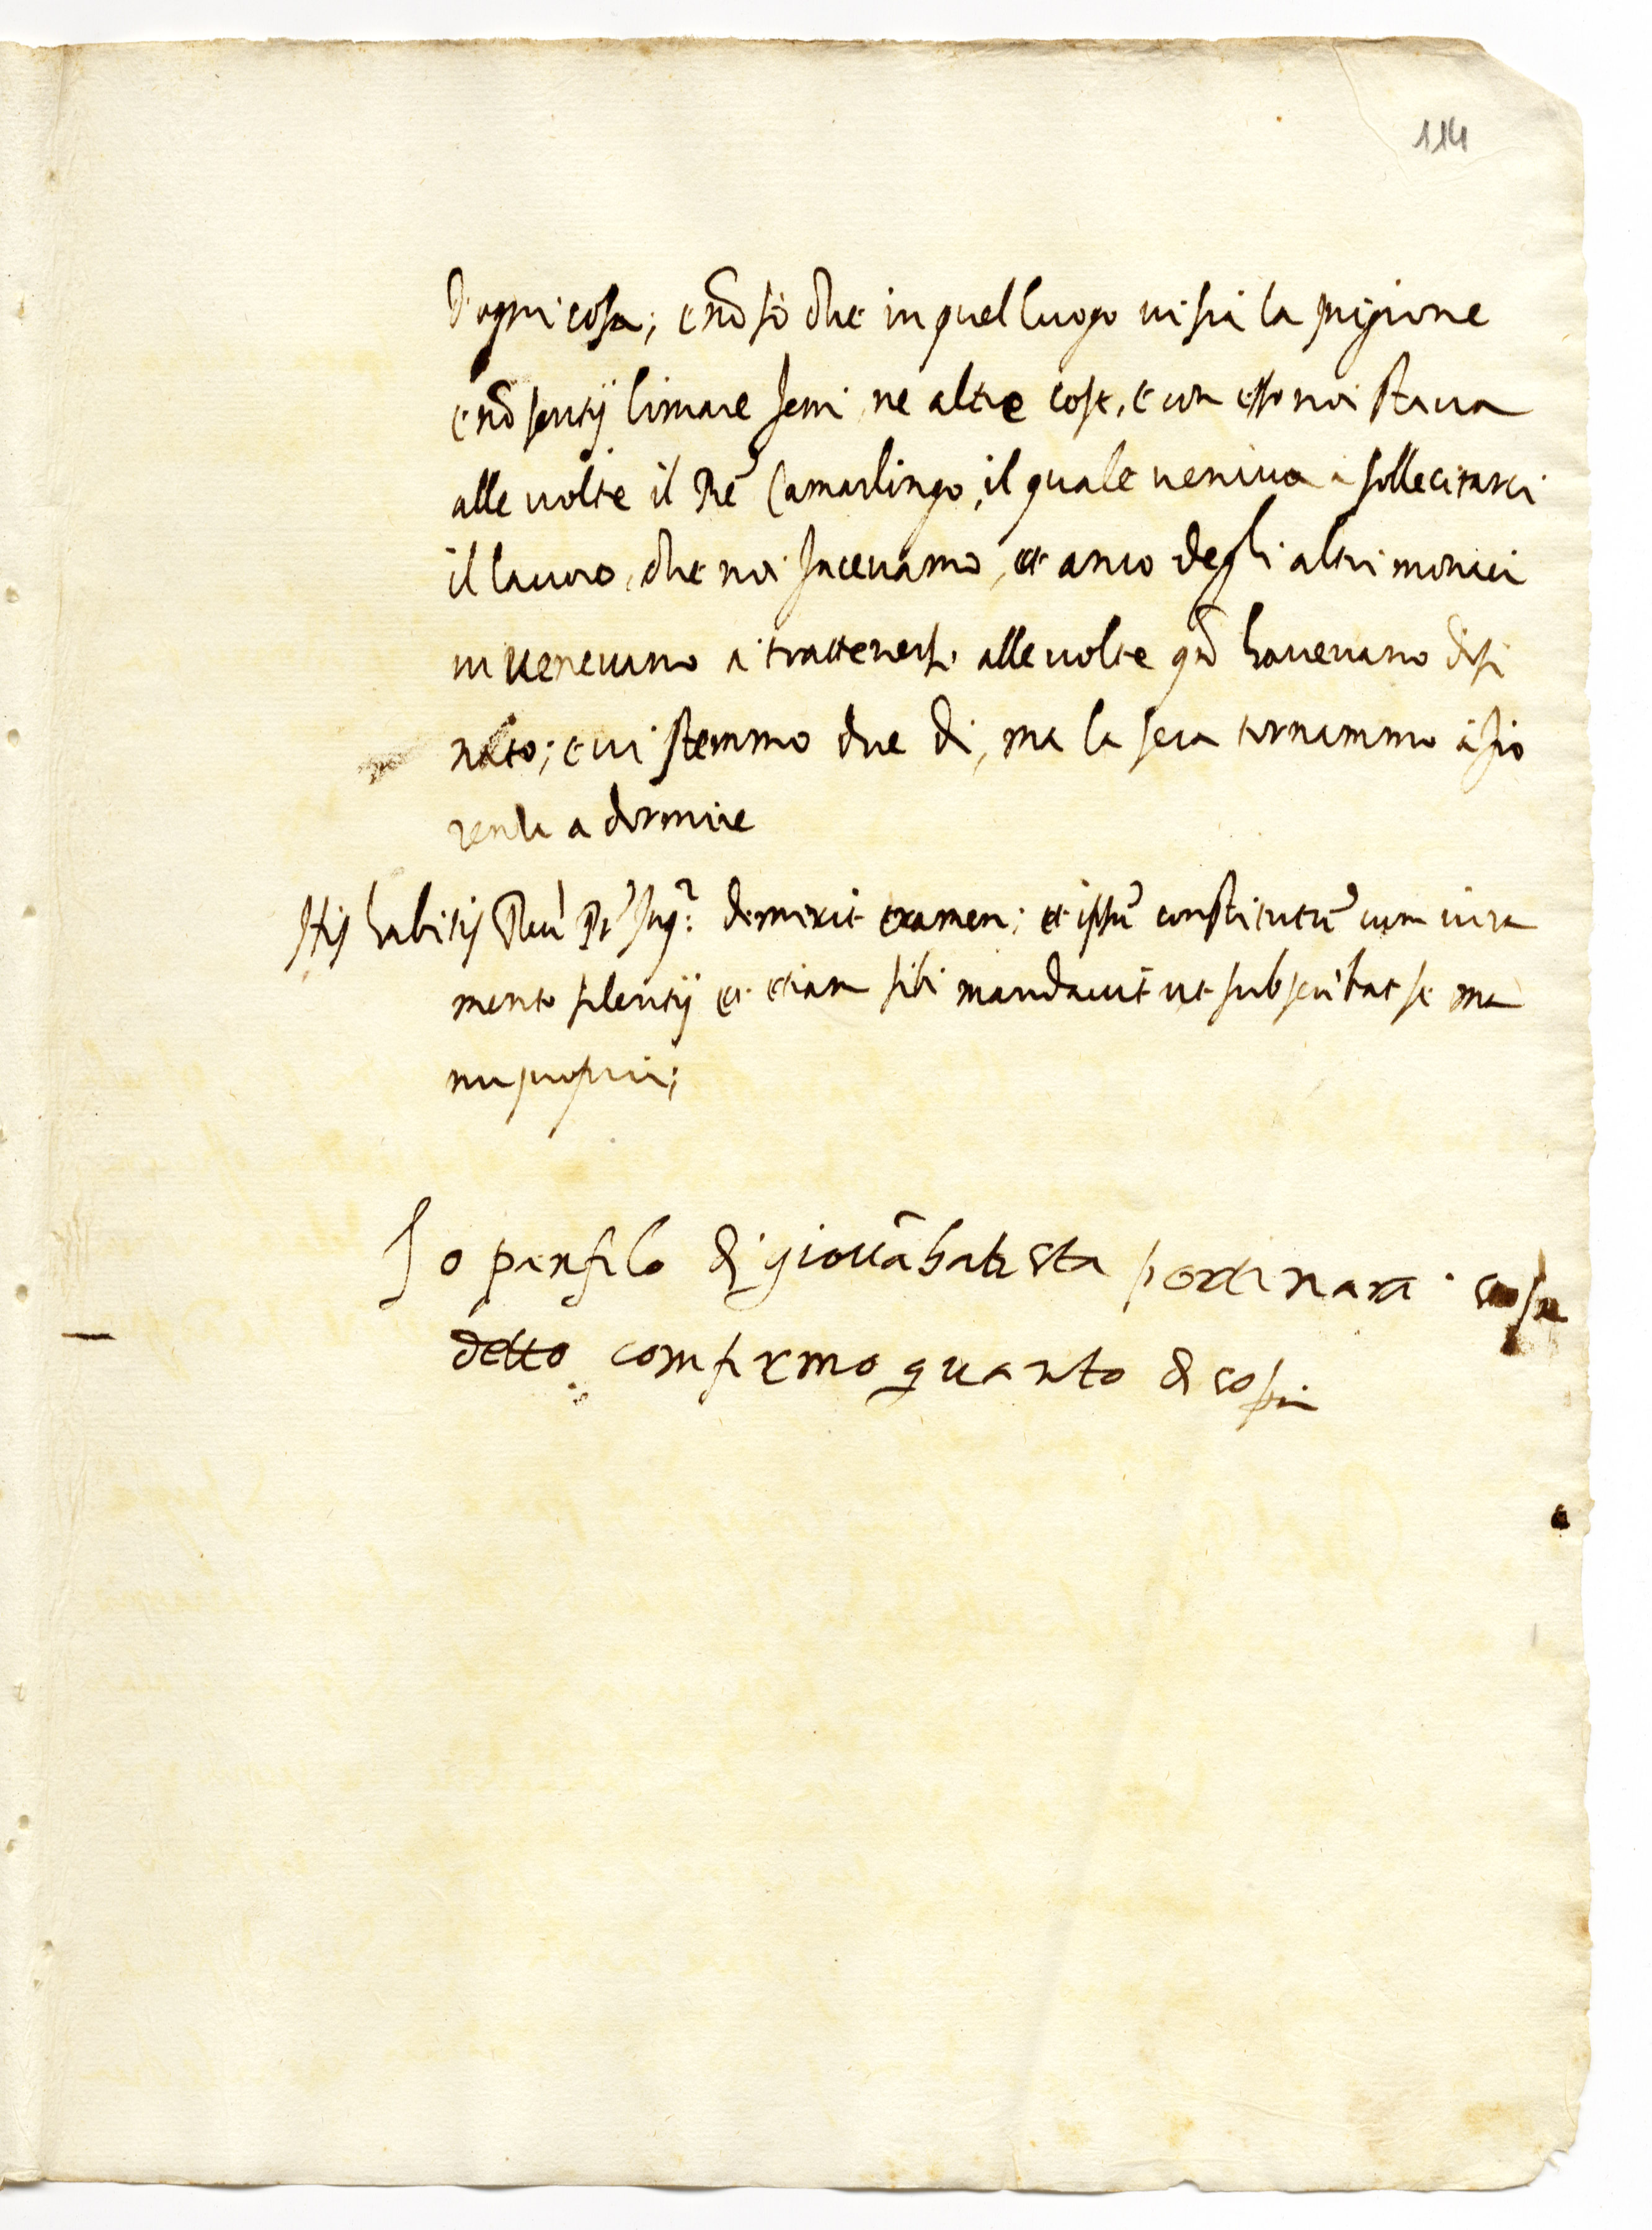 114
d'ogni cosa; e nō sò che in quel luogo vi sia la prigione
e nō sentij limare ferri, ne altre cose, e con esso noi stava
alle volte il Pre Camarlingo, il quale veniva à sollecitarci
il lavoro, che noi facevamo, et anco degli altri monaci
vi venevano à trattenersi alle volte qñ havevano desi
nato; e vi stemmo due di, ma la sera tornammo à fio
renza a dormire
His habitis Reu' Pr' Inqr: dimisit examen; et ipsū constitutū cum iura
mento silentij et etiam sibi mandavit ut subscribat se ma
nu propria;
Io panfilo di giovābatista portinari
detto comfermo quanto di sopra